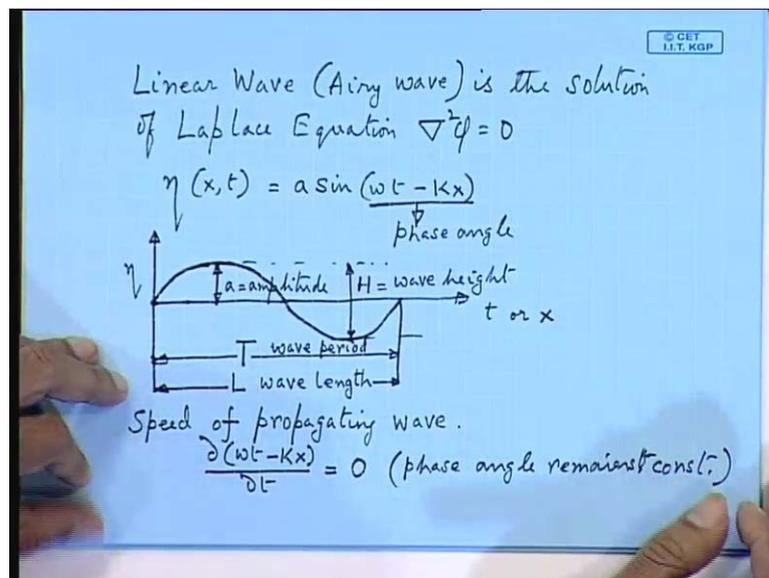 © CET
I.I.T. KGP
Linear Wave (Airy wave) is the solution
of Laplace Equation ∇²φ = 0
η (x, t) = a sin (ωt - Kx)
phase angle
η
a = amplitude
H = wave height
t or x
T wave period
L wave length
Speed of propagating wave.
∂(ωt - Kx)/∂t = 0 (phase angle remains const.)